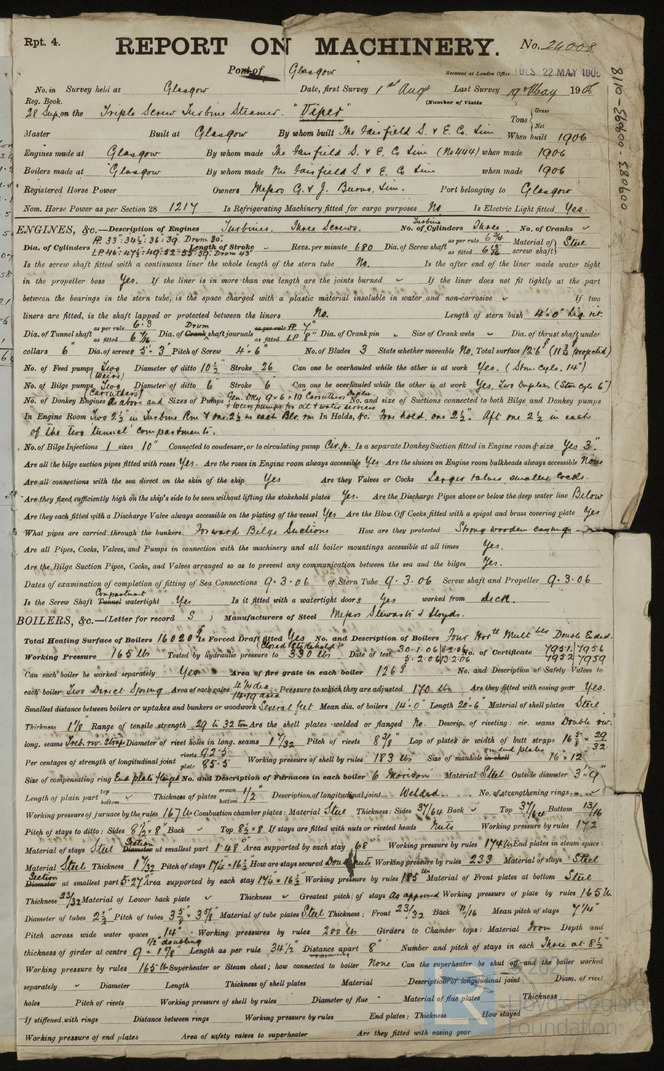 Rpt. 4.
REPORT ON MACHINERY. No. 24008
Port of Glasgow Received at London Office TUES. 22 MAY 1906
No. in Survey held at Glasgow Date, first Survey 1st Augt Last Survey 19th May 1906
Reg. Book. (Number of Visits
28 Sup. on the Triple Screw Turbine Steamer "Viper" Tons Gross Net
Master Built at Glasgow By whom built The Fairfield S. & E. Co Lim When built 1906
Engines made at Glasgow By whom made The Fairfield S. & E. Co Lim (No 444) when made 1906
Boilers made at Glasgow By whom made The Fairfield S. & E. Co Lim when made 1906
Registered Horse Power Owners Messrs G. & J. Burns, Lim. Port belonging to Glasgow
Nom. Horse Power as per Section 28 1217 Is Refrigerating Machinery fitted for cargo purposes No Is Electric Light fitted Yes.
ENGINES, &c.—Description of Engines Turbines. Three Screws. No. of Turbine Cylinders Three. No. of Cranks
Dia. of Cylinders Length of Stroke Revs. per minute 680 Dia. of Screw shaft as per rule 6 3/4 as fitted Material of screw shaft Steel
Is the screw shaft fitted with a continuous liner the whole length of the stern tube No. Is the after end of the liner made water tight
in the propeller boss Yes. If the liner is in more than one length are the joints burned If the liner does not fit tightly at the part
between the bearings in the stern tube, is the space charged with a plastic material insoluble in water and non-corrosive If two
liners are fitted, is the shaft lapped or protected between the liners No. Length of stern bush 4'-0" lig. vit.
Dia. of Tunnel shaft as per rule 6.3 as fitted Dia. of Drum shaft journals as fitted HP 7" LP 8" Dia. of Crank pin Size of Crank webs Dia. of thrust shaft under
collars 6" Dia. of screw 5-3 Pitch of Screw 4-6" No. of Blades 3 State whether moveable No. Total surface
No. of Feed pumps Two (Weirs) Diameter of ditto 10½ Stroke 26 Can one be overhauled while the other is at work Yes.
No. of Bilge pumps Two Diameter of ditto 6 Stroke 6 Can one be overhauled while the other is at work Yes.
No. of Donkey Engines Sizes of Pumps No. and size of Suctions connected to both Bilge and Donkey pumps
In Engine Room Two 2½ in Turbine Rm In Holds, &c. Fore hold one 2½". Aft one 2½ in each
of the two tunnel compartments.
No. of Bilge Injections 1 sizes 10" Connected to condenser, or to circulating pump Cir. p. Is a separate Donkey Suction fitted in Engine room & size Yes 3"
Are all the bilge suction pipes fitted with roses Yes. Are the roses in Engine room always accessible Yes Are the sluices on Engine room bulkheads always accessible None
Are all connections with the sea direct on the skin of the ship Yes Are they Valves or Cocks Larger valves smaller cocks.
Are they fixed sufficiently high on the ship's side to be seen without lifting the stokehold plates Yes. Are the Discharge Pipes above or below the deep water line Below
Are they each fitted with a Discharge Valve always accessible on the plating of the vessel Yes Are the Blow Off Cocks fitted with a spigot and brass covering plate Yes
What pipes are carried through the bunkers Forward Bilge Suctions How are they protected Strong wooden casings
Are all Pipes, Cocks, Valves, and Pumps in connection with the machinery and all boiler mountings accessible at all times Yes.
Are the Bilge Suction Pipes, Cocks, and Valves arranged so as to prevent any communication between the sea and the bilges Yes.
Dates of examination of completion of fitting of Sea Connections 9.3.06 of Stern Tube 9.3.06 Screw shaft and Propeller 9.3.06
Is the Screw Shaft Compartment Tunnel watertight Yes Is it fitted with a watertight door Yes worked from deck.
BOILERS, &c.—(Letter for record S) Manufacturers of Steel Messrs Stewarts & Lloyds.
Total Heating Surface of Boilers 16020 Is Forced Draft fitted Yes (Closed Stokehold) No. and Description of Boilers Four Double Ended.
Working Pressure 165 lbs Tested by hydraulic pressure to 330 lbs Date of test 30.1.06 No. of Certificate 7951. 7956 7952 7959
Can each boiler be worked separately Yes Area of fire grate in each boiler 126 No. and Description of Safety Valves to
each boiler Two Direct Spring Area of each valve Pressure to which they are adjusted 170 lbs Are they fitted with easing gear Yes.
Smallest distance between boilers or uptakes and bunkers or woodwork Several feet Mean dia. of boilers 14'-0" Length 20-6" Material of shell plates Steel
Thickness 1 1/8 Range of tensile strength 29 to 32 tons Are the shell plates welded or flanged No. Descrip. of riveting: cir. seams Double riv.
long. seams Diameter of rivet holes in long. seams 1 7/32 Pitch of rivets 8 3/8" Lap of plates or width of butt straps
Per centages of strength of longitudinal joint rivets 92.5 plate 85.5 Working pressure of shell by rules 183 lbs Size of manhole on end plates 16 × 12"
Size of compensating ring End plate flanged No. and Description of Furnaces in each boiler 6 Morison Material Steel Outside diameter 3'-9"
Length of plain part top bottom Thickness of plates crown bottom ½" Description of longitudinal joint Welded. No. of strengthening rings
Working pressure of furnace by the rules 167 lbs Combustion chamber plates: Material Steel Thickness: Sides 37/64 Back Top 37/64 Bottom 13/16
Pitch of stays to ditto: Sides 8½ × 8" Back Top 8½ × 8 If stays are fitted with nuts or riveted heads Nuts Working pressure by rules 172
Material of stays Steel Section Diameter at smallest part 1.48 Area supported by each stay 68 Working pressure by rules 174 lbs End plates in steam space:
Material Steel Thickness 1 7/32 Pitch of stays How are stays secured Double Nuts Working pressure by rules 233 Material of stays Steel
Section Diameter at smallest part 5.27 Area supported by each stay Working pressure by rules 185 lbs Material of Front plates at bottom Steel
Thickness 23/32 Material of Lower back plate Thickness Greatest pitch of stays As approved Working pressure of plate by rules 165 lbs
Diameter of tubes 2½ Pitch of tubes Material of tube plates Steel Thickness: Front 23/32 Back 11/16 Mean pitch of stays 7¼"
Pitch across wide water spaces 14" Working pressures by rules 200 lbs Girders to Chamber tops: Material Iron Depth and
thickness of girder at centre Length as per rule 34½ Distance apart 8" Number and pitch of stays in each Three at 8½"
Working pressure by rules 165 lbs Superheater or Steam chest; how connected to boiler None Can the superheater be shut off and the boiler worked
separately Diameter Length Thickness of shell plates Material Description of longitudinal joint Diam. of rivet
holes Pitch of rivets Working pressure of shell by rules Diameter of flue Material of flue plates Thickness
If stiffened with rings Distance between rings Working pressure by rules End plates: Thickness How stayed
Working pressure of end plates Area of safety valves to superheater Are they fitted with easing gear
Lloyd's Register
Foundation